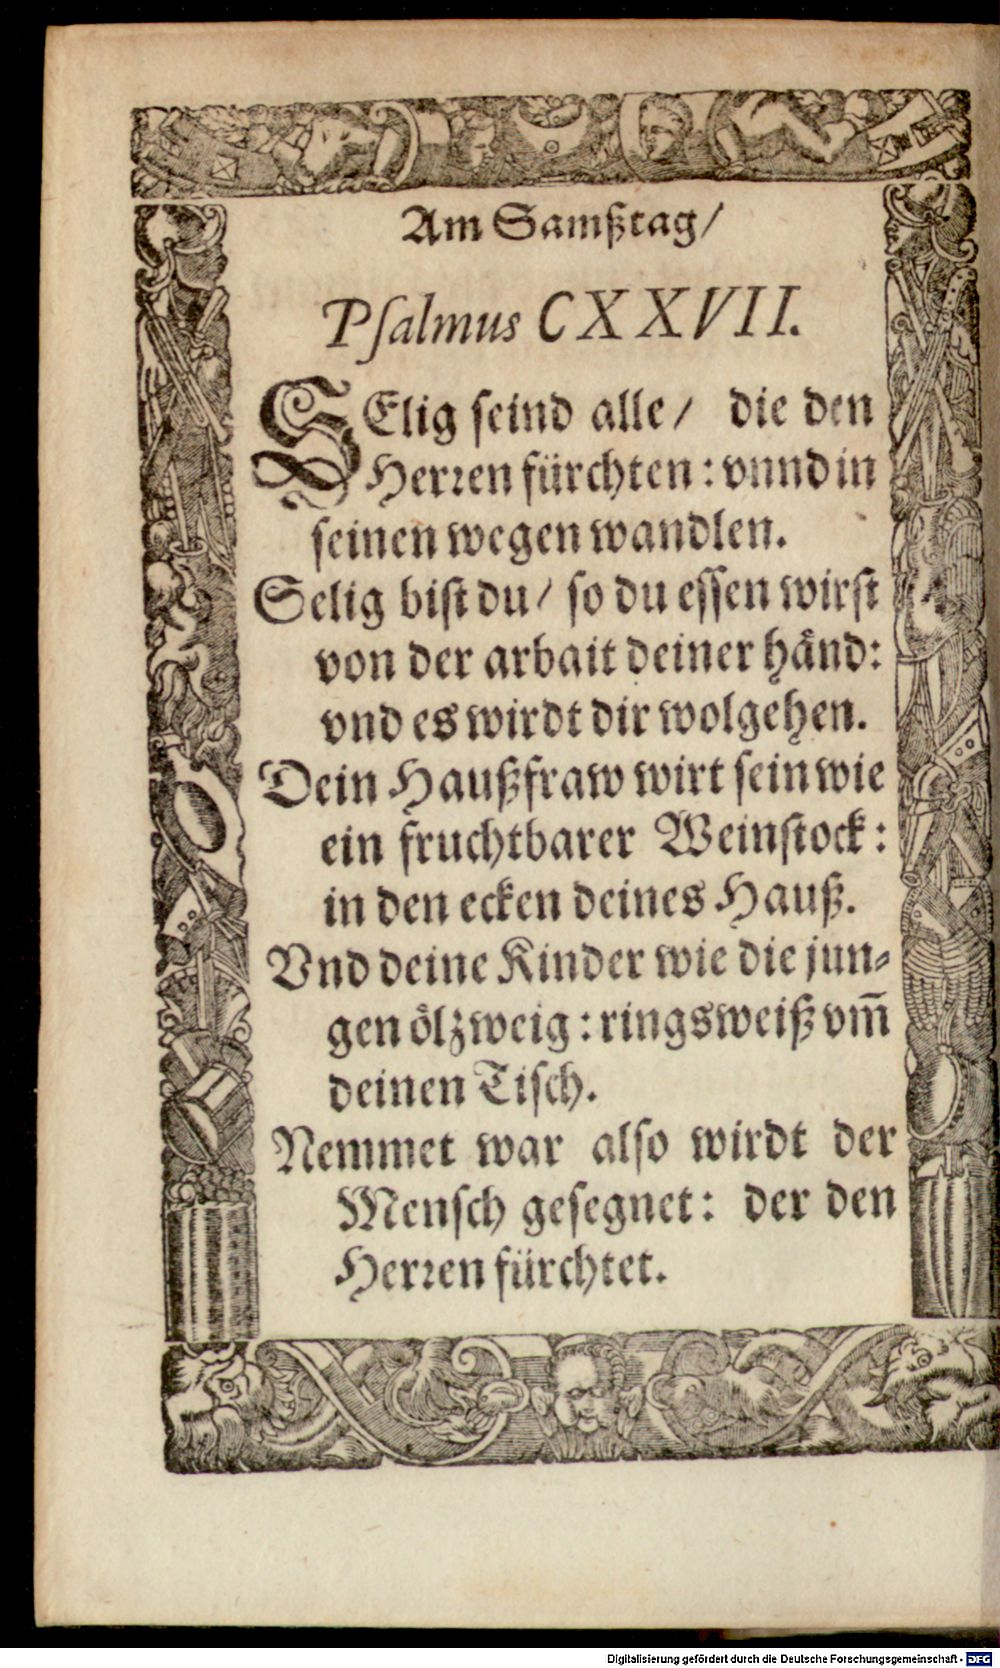 Am Samßtag/
Psalmus CXXVII.
SElig seind alle/ die den
Herren fürchten: vnnd in
seinen wegen wandlen.
Selig bist du/ so du essen wirst
von der arbait deiner händ:
vnd es wirdt dir wolgehen.
Dein Haußfraw wirt sein wie
ein fruchtbarer Weinstock:
in den ecken deines Hauß.
Vnd deine Kinder wie die jun⸗
gen ölzweig: ringsweiß vm̄
deinen Tisch.
Nemmet war also wirdt der
Mensch gesegnet: der den
Herren fürchtet.
Digitalisierung gefördert durch die Deutsche Forschungsgemeinschaft - DFG